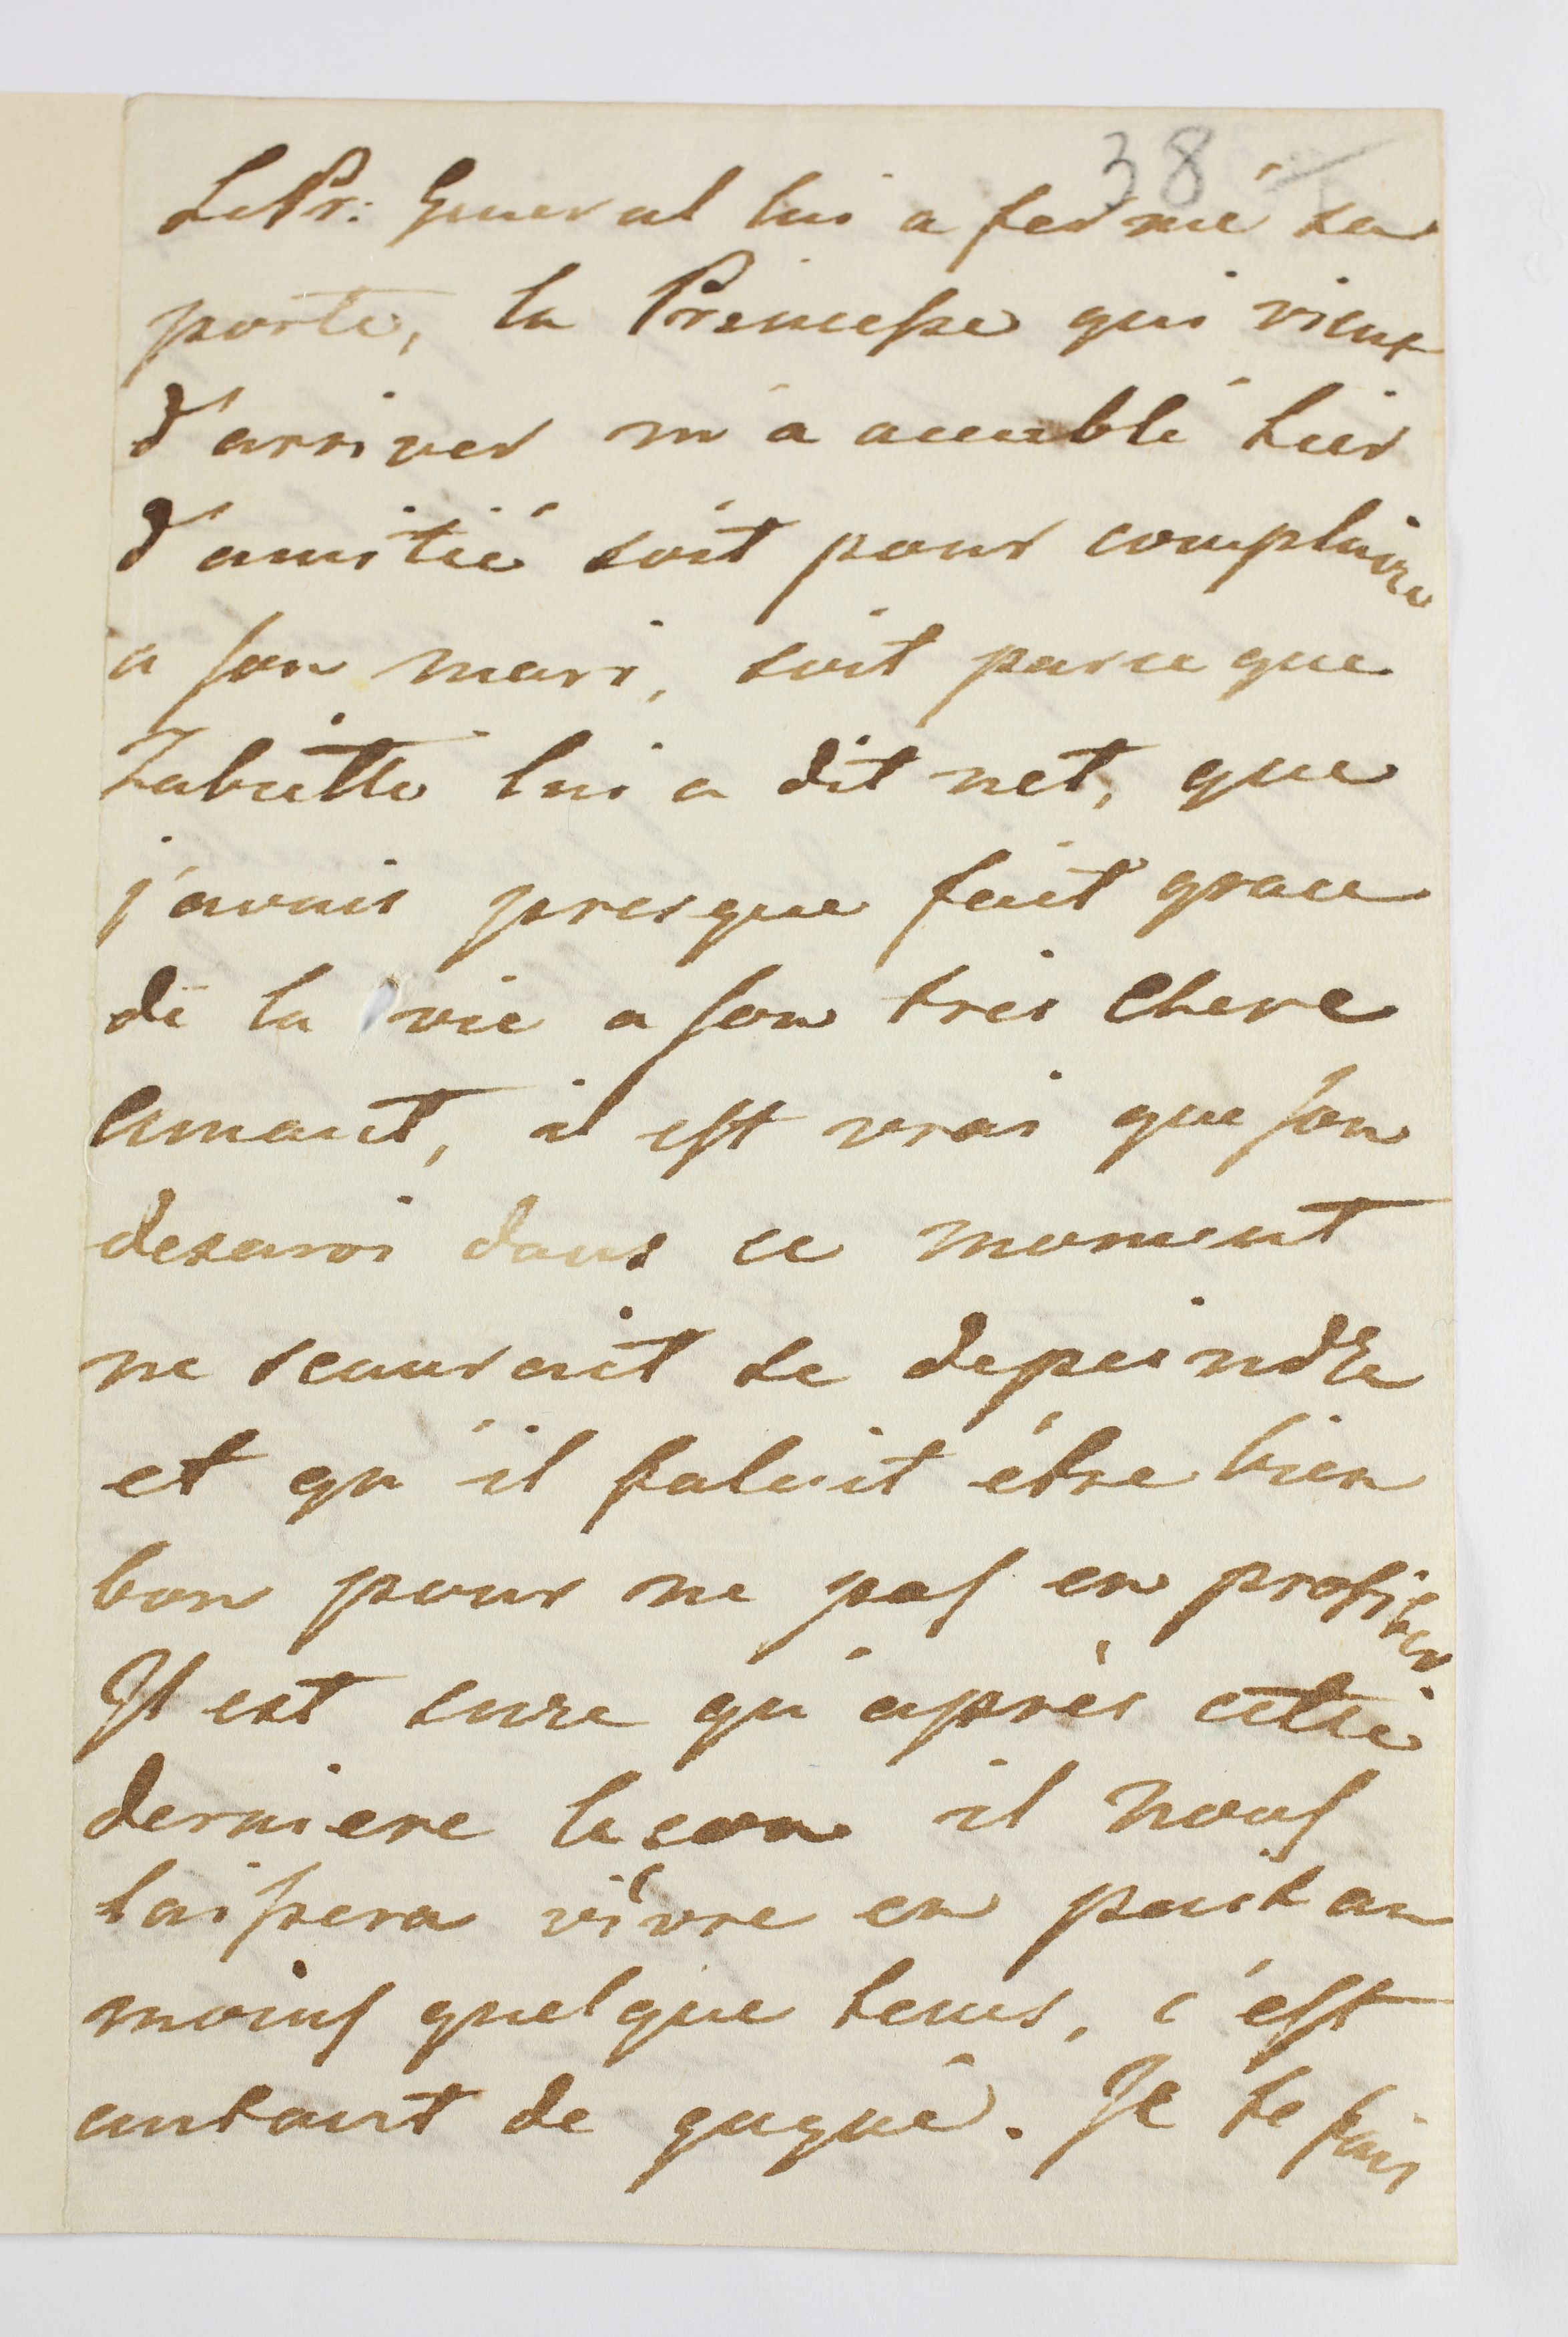 38
Le Pr: General lui a fermé sa
porte, la Princesse qui vient
d'arriver m'a accablé hier
d'amitié soit pour complaire
a son mari, soit parce que
Zabiello lui a dit net, que
j'avais presque fait grace
de la vie a son tres chere
amant, il est vrai que son
desaroi dans ce moment
ne scaurait se depeindre
et qu'il falait être bien
bon pour ne pas en profiter.
Il est sure qu'après cette
derniere lecon il nous
laissera vivre en paix au
moins quelque tems, c'est
autant de gagné. Je te fais